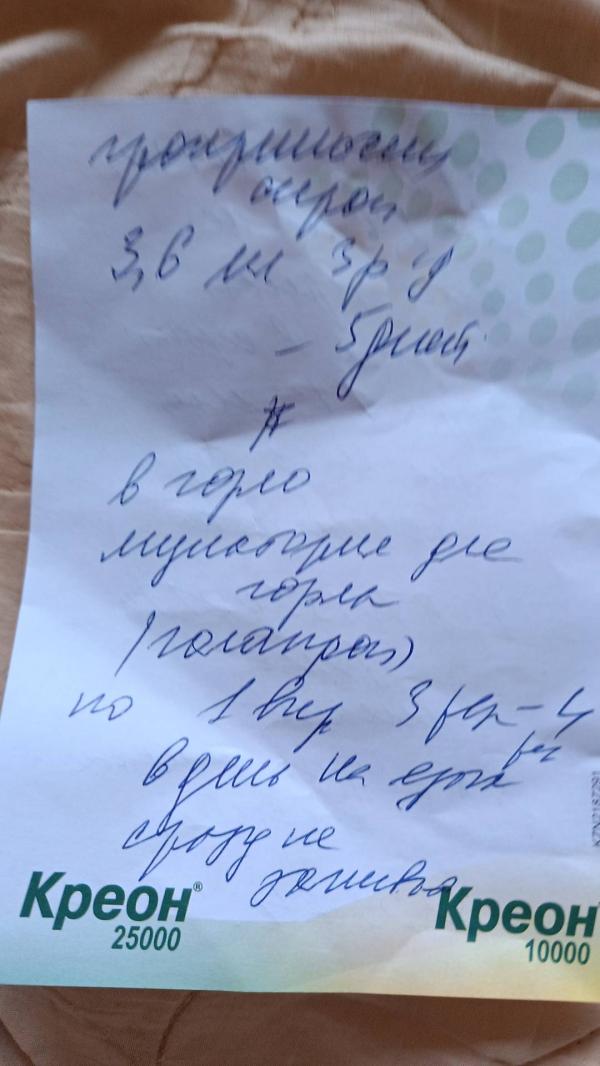 гроприносин
сироп
3,6 мл 3 р д
– 5 дней
#
в горло
для
горла
по 1 впр 3 раз – 4
раз
в день на
сразу не
Креон® Креон
25000 10000